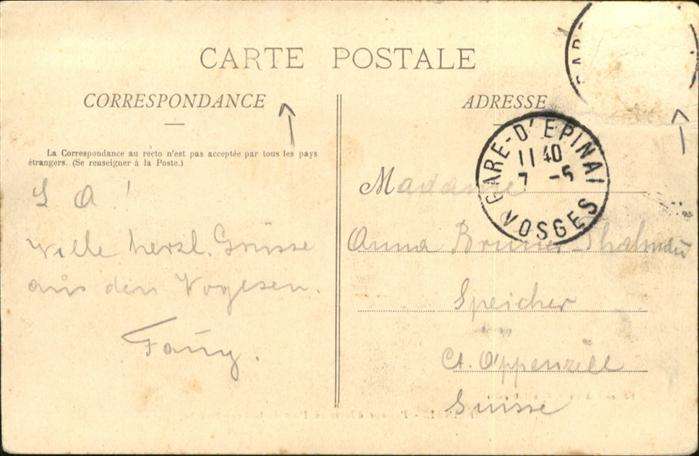 CARTE POSTALE
CORRESPONDANCE
ADRESSE
La Correspondance au recto n'est pas acceptée par tous les pays
étrangers. (Se renseigner à la Poste.)
L A!
Viele herzl. Grüsse
aus den Vogesen.
Fany.
GARE-D'EPINAL
11 40
7 -5
VOSGES
GARE
Madame
Anna Brunner-Thalmann
Speicher
Ct. Appenzell
Suisse